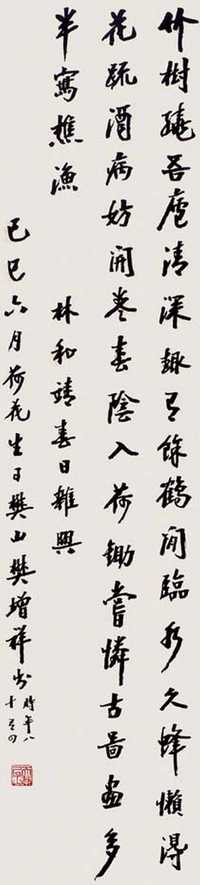 竹樹繞吾廬清深趣有餘鶴閒臨水久蜂懶得
花疏酒病妨開卷春陰入荷鋤嘗憐古啚畫多
半寫樵漁 林和靖春日雜興
己巳六月荷花生日樊山樊增祥書
時年八
十有四